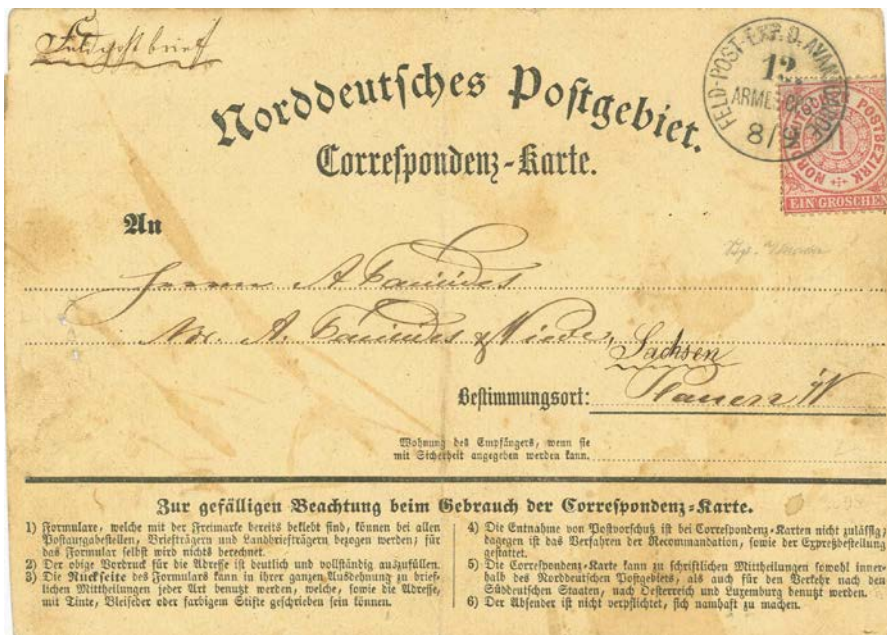 Feldpostbrief
FELD-POST-EXP. D. AVANTGARDE
12.
ARMEE-CORPS
8/9
NORDDEUTSCHER POSTBEZIRK
1
EIN GROSCHEN
Norddeutsches Postgebiet.
Correspondenz-Karte.
An
Herrn A
Adr. A. & Wiede,
Sachsen
Bestimmungsort: Plauen i/V
Wohnung des Empfängers, wenn sie
mit Sicherheit angegeben werden kann.
Zur gefälligen Beachtung beim Gebrauch der Correspondenz-Karte.
1) Formulare, welche mit der Freimarke bereits beklebt sind, können bei allen
Postausgabestellen, Briefträgern und Landbriefträgern bezogen werden; für
das Formular selbst wird nichts berechnet.
2) Der obige Vordruck für die Adresse ist deutlich und vollständig auszufüllen.
3) Die Rückseite des Formulars kann in ihrer ganzen Ausdehnung zu brief-
lichen Mittheilungen jeder Art benutzt werden, welche, sowie die Adresse,
mit Tinte, Bleifeder oder farbigem Stifte geschrieben sein können.
4) Die Entnahme von Postvorschuß ist bei Correspondenz-Karten nicht zulässig;
dagegen ist das Verfahren der Recommandation, sowie der Expreßbestellung
gestattet.
5) Die Correspondenz-Karte kann zu schriftlichen Mittheilungen sowohl inner-
halb des Norddeutschen Postgebiets, als auch für den Verkehr nach den
Süddeutschen Staaten, nach Oesterreich und Luxemburg benutzt werden.
6) Der Absender ist nicht verpflichtet, sich namhaft zu machen.